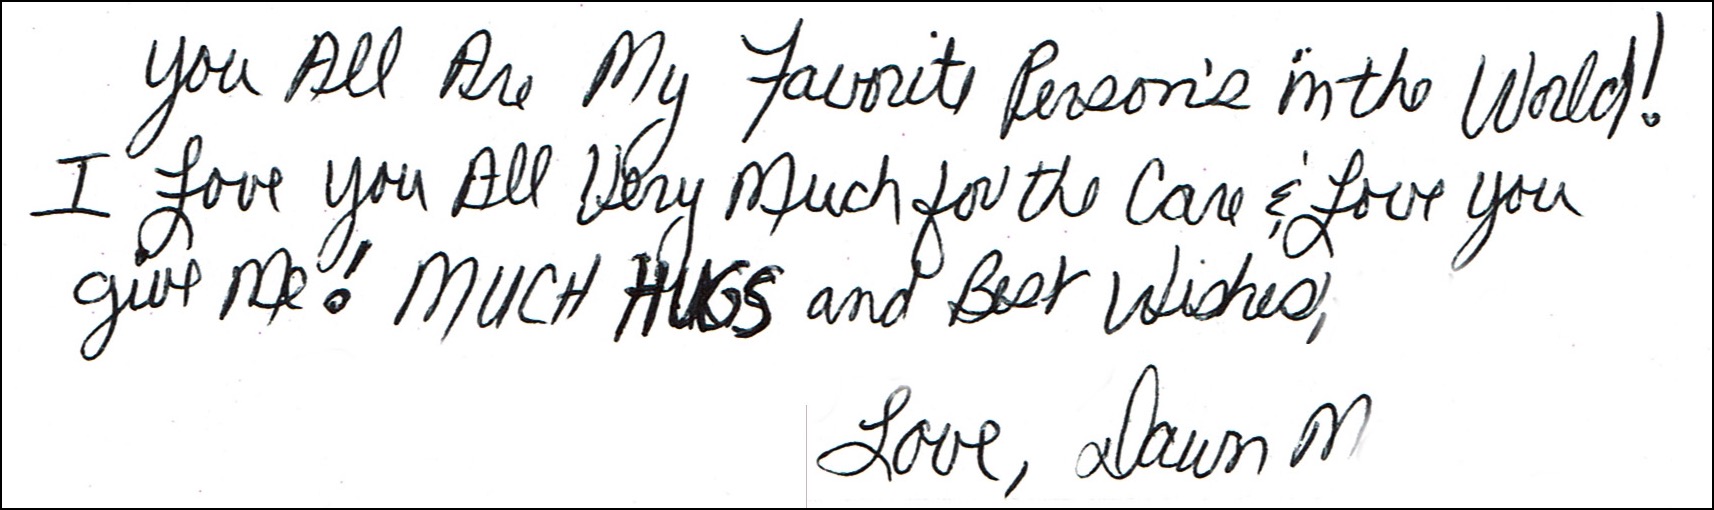 You All Are My Favorite Person's in the World!
I Love You All Very Much for the Care & Love you
give Me! MUCH HUGS and Best Wishes,
Love, Dawn M